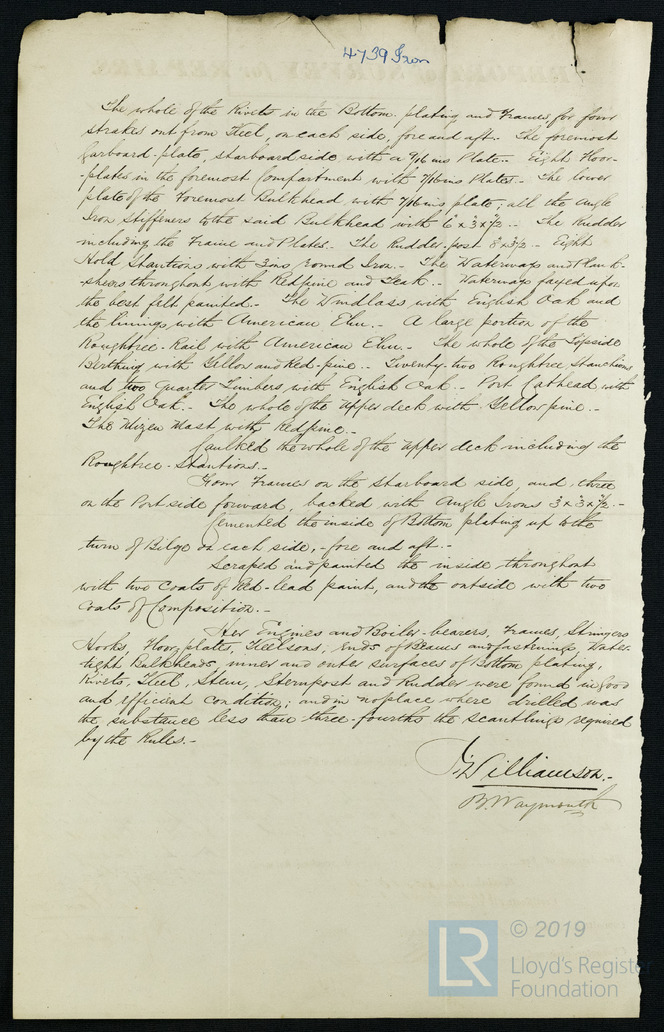 4739 Iron
The whole of the Rivets in the Bottom plating and Frames, for four
strakes out from Keel, on each side, fore and aft. The foremost
Garboard-plate, starboard side, with a 9/16 ins Plate.- Eight Floor-
-plates in the foremost Compartment with 7/16 ins Plates.- The lower
plate of the Foremost Bulkhead with 7/16 ins plate; all the Angle
Iron Stiffeners to the said Bulkhead with 6 x 3 x 1/2.- The Rudder
including the Frame and Plates. The Rudder-post 8 x 3 1/2.- Eight
Hold Stantions with 3 ins round Iron.- The Waterways and Plank-
-sheers throughout with Redpine and Teak.- Waterways fayed upon
the best felt painted.- The Windlass with English Oak and
the linings with American Elm.- A large portion of the
Roughtree-Rail with American Elm.- The whole of the Topside
Berthing with Yellow and Red-pine.- Twenty-two Roughtree Stanchions
and two Quarter Timbers with English Oak.- Port Cathead with
English Oak.- The whole of the Upper deck with Yellow pine.-
The Mizen Mast with Redpine.-
Caulked the whole of the Upper deck including the
Roughtree-Stantions.-
Four Frames on the Starboard side, and three
on the Port side forward, backed with Angle Irons 3 x 3 x 1/2.-
Cemented the inside of Bottom plating up to the
turn of Bilge on each side,- fore and aft.-
Scraped and painted the inside throughout
with two coats of Red-lead paint, and the outside with two
coats of Composition.-
Her Engines and Boiler-bearers, Frames, Stringers
Hooks, Floorplates, Keelsons, Ends of Beams and fastenings, Water-
tight Bulkheads, inner and outer surfaces of Bottom plating,
Rivets, Keel, Stem, Sternpost and Rudder were found in good
and efficient condition; and in no place where drilled was
the substance less than three-fourths the scantlings required
by the Rules.-
Williamson.-
B. Waymouth
LR © 2019
Lloyd's Register
Foundation